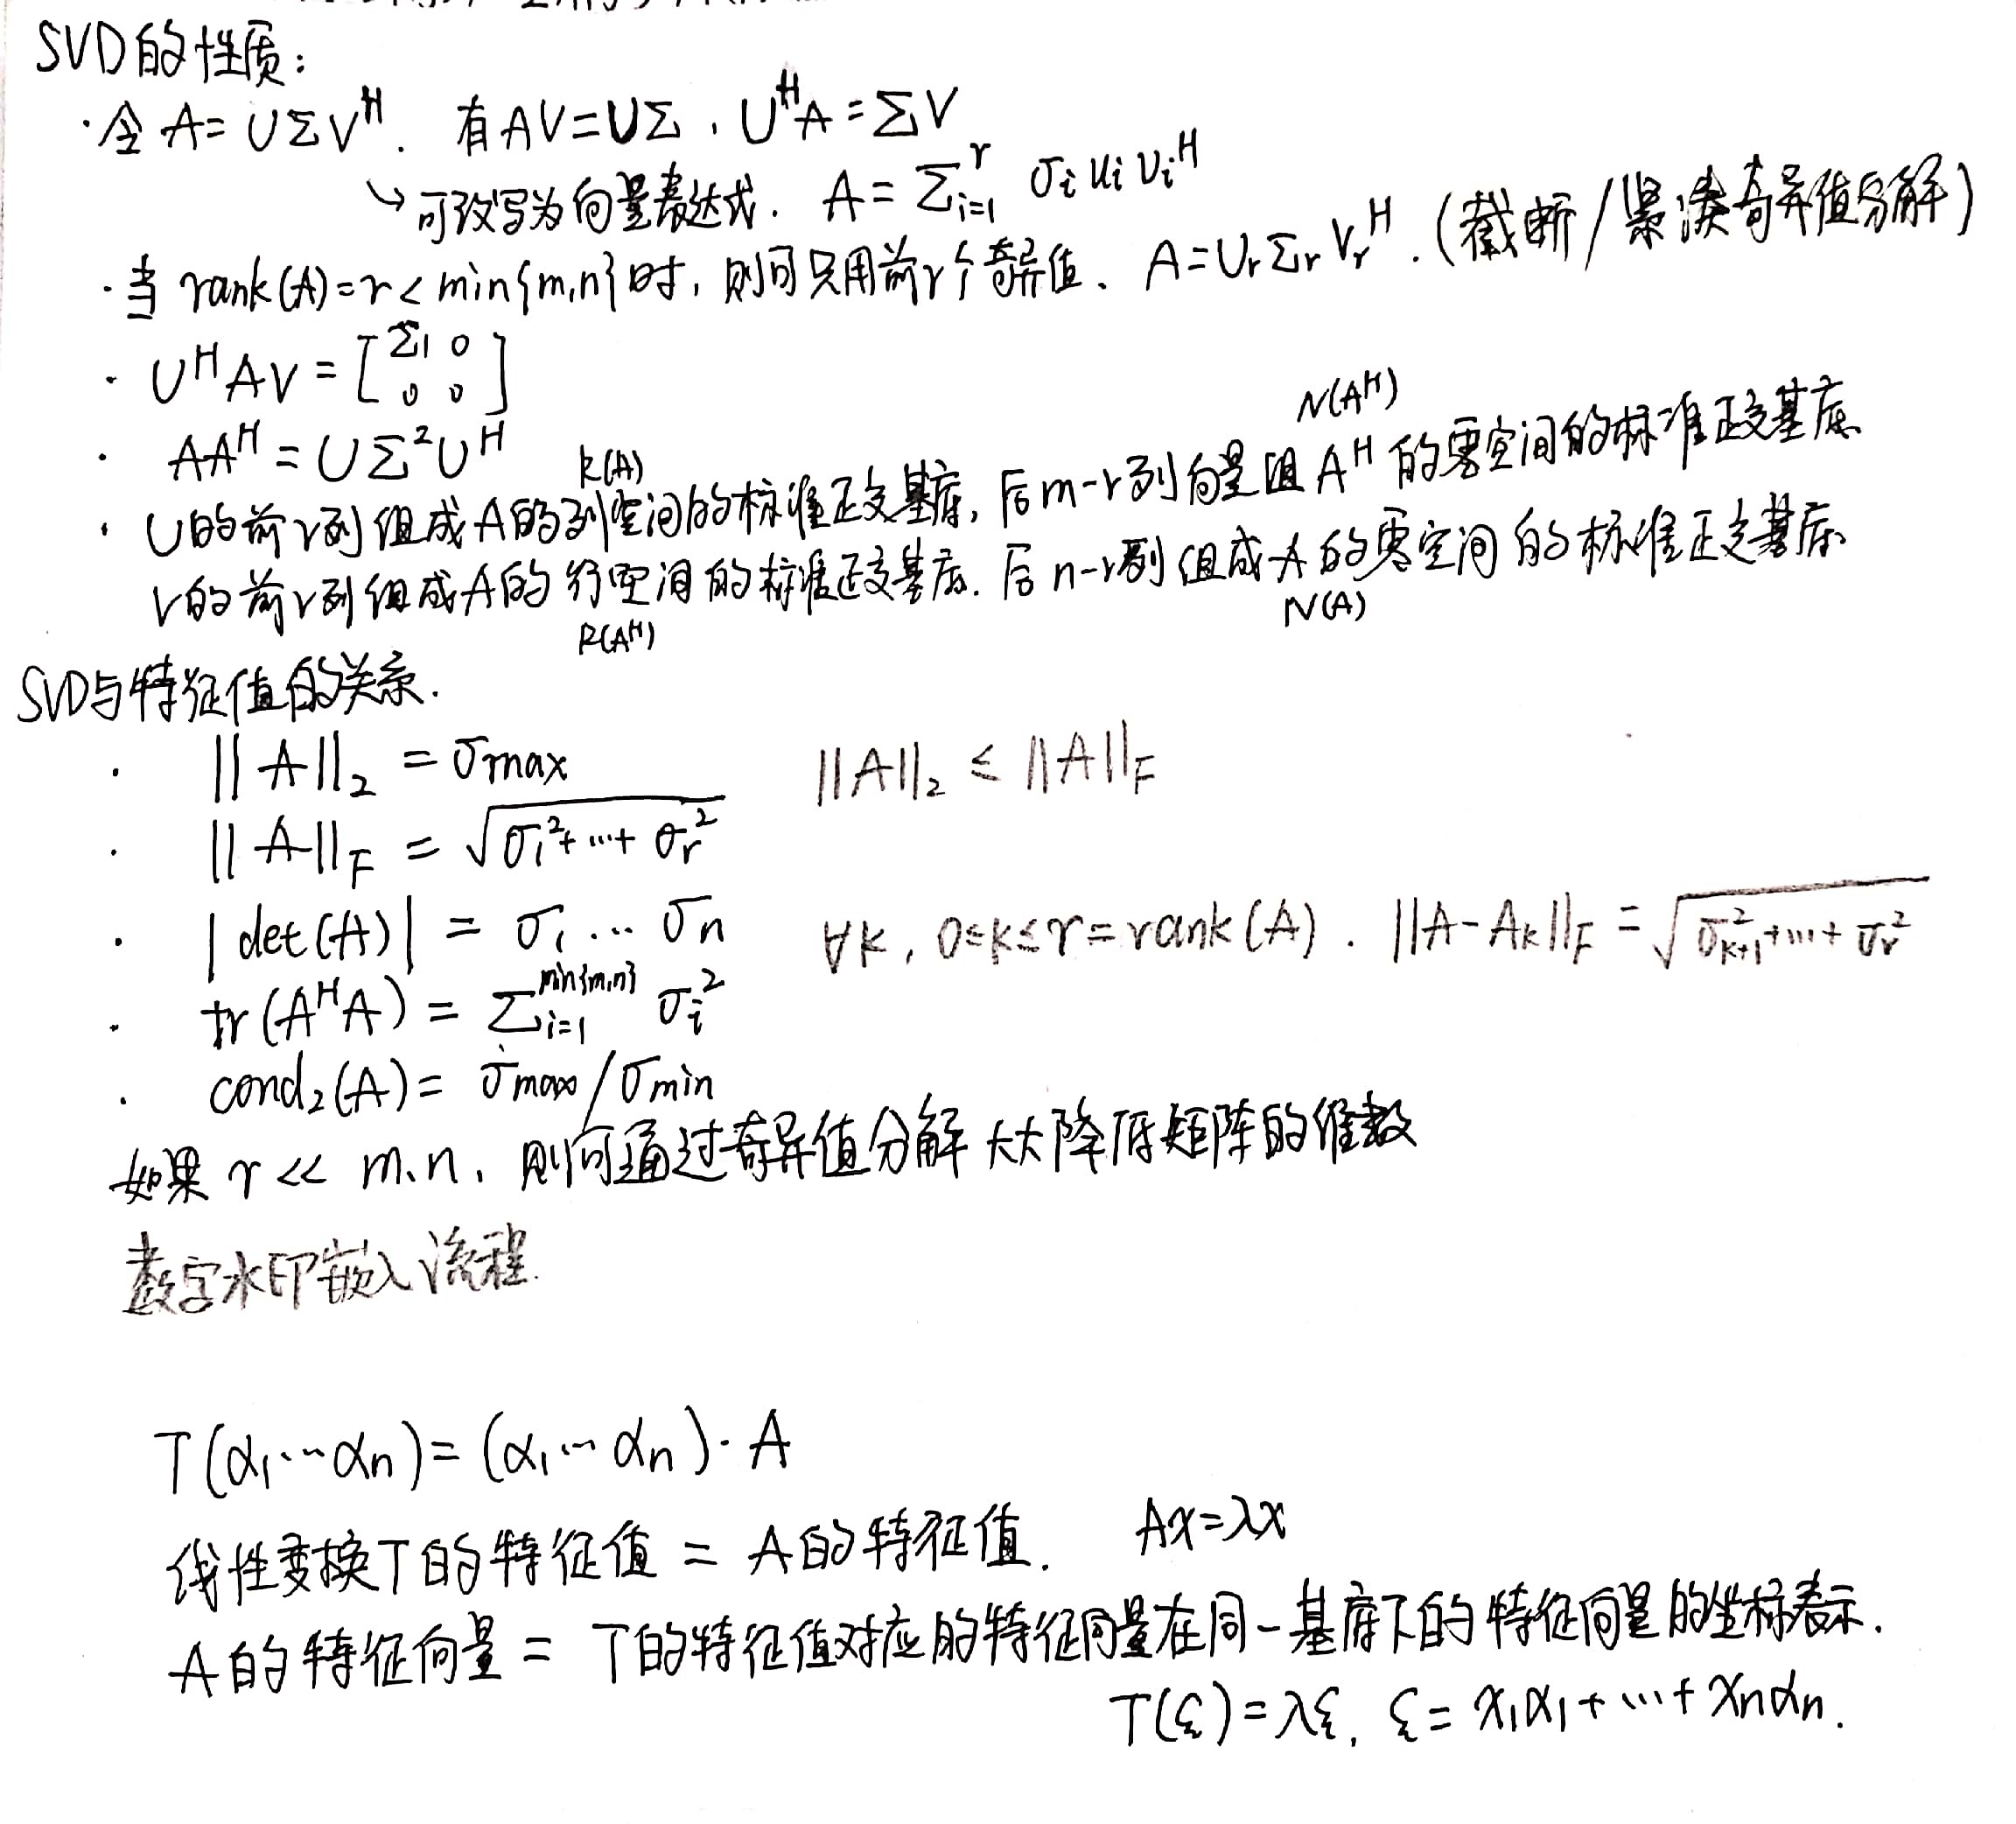 SVD的性质：
· 令 A = UΣV^H. 有 AV=UΣ, U^H A = ΣV
↘ 可改写为向量表达式. A = Σ_{i=1}^r σ_i u_i v_i^H
· 当 rank(A)=r < min{m,n} 时, 则可只用前r个奇异值、 A=U_r Σ_r V_r^H. (截断/紧凑奇异值分解)
· U^H A V = [Σ_1 0
0 0]
· AA^H = UΣ^2U^H
R(A) N(A^H)
· U的前r列组成A的列空间的标准正交基底, 后m-r列向量组A^H的零空间的标准正交基底
V的前r列组成A的行空间的标准正交基底. 后n-r列组成A的零空间的标准正交基底.
R(A^H) N(A)
SVD与特征值的关系.
· ||A||_2 = σ_max ||A||_2 ≤ ||A||_F
· ||A||_F = √(σ_1^2+…+σ_r^2)
· |det(A)| = σ_1…σ_n ∀k, 0≤k≤r=rank(A). ||A-A_k||_F = √(σ_{k+1}^2+…+σ_r^2)
· tr(A^H A) = Σ_{i=1}^{min{m,n}} σ_i^2
· cond_2(A) = σ_max/σ_min
如果 r << m、n, 则可通过奇异值分解大大降低矩阵的维数
数字水印嵌入流程.
T(α_1…α_n) = (α_1…α_n)·A
线性变换T的特征值 = A的特征值. Ax=λx
A的特征向量 = T的特征值对应的特征向量在同一基底下的特征向量的坐标表示.
T(ξ)=λξ, ξ= x_1α_1+…+x_nα_n.